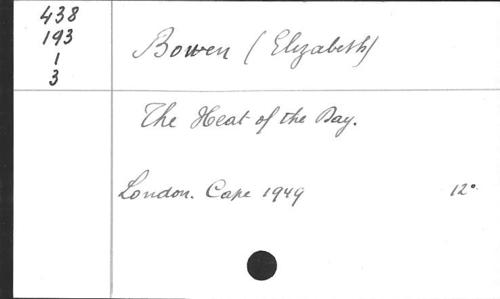 438
193
1
3
Bowen (Elizabeth)
The Heat of the Day.
London. Cape 1949 12°